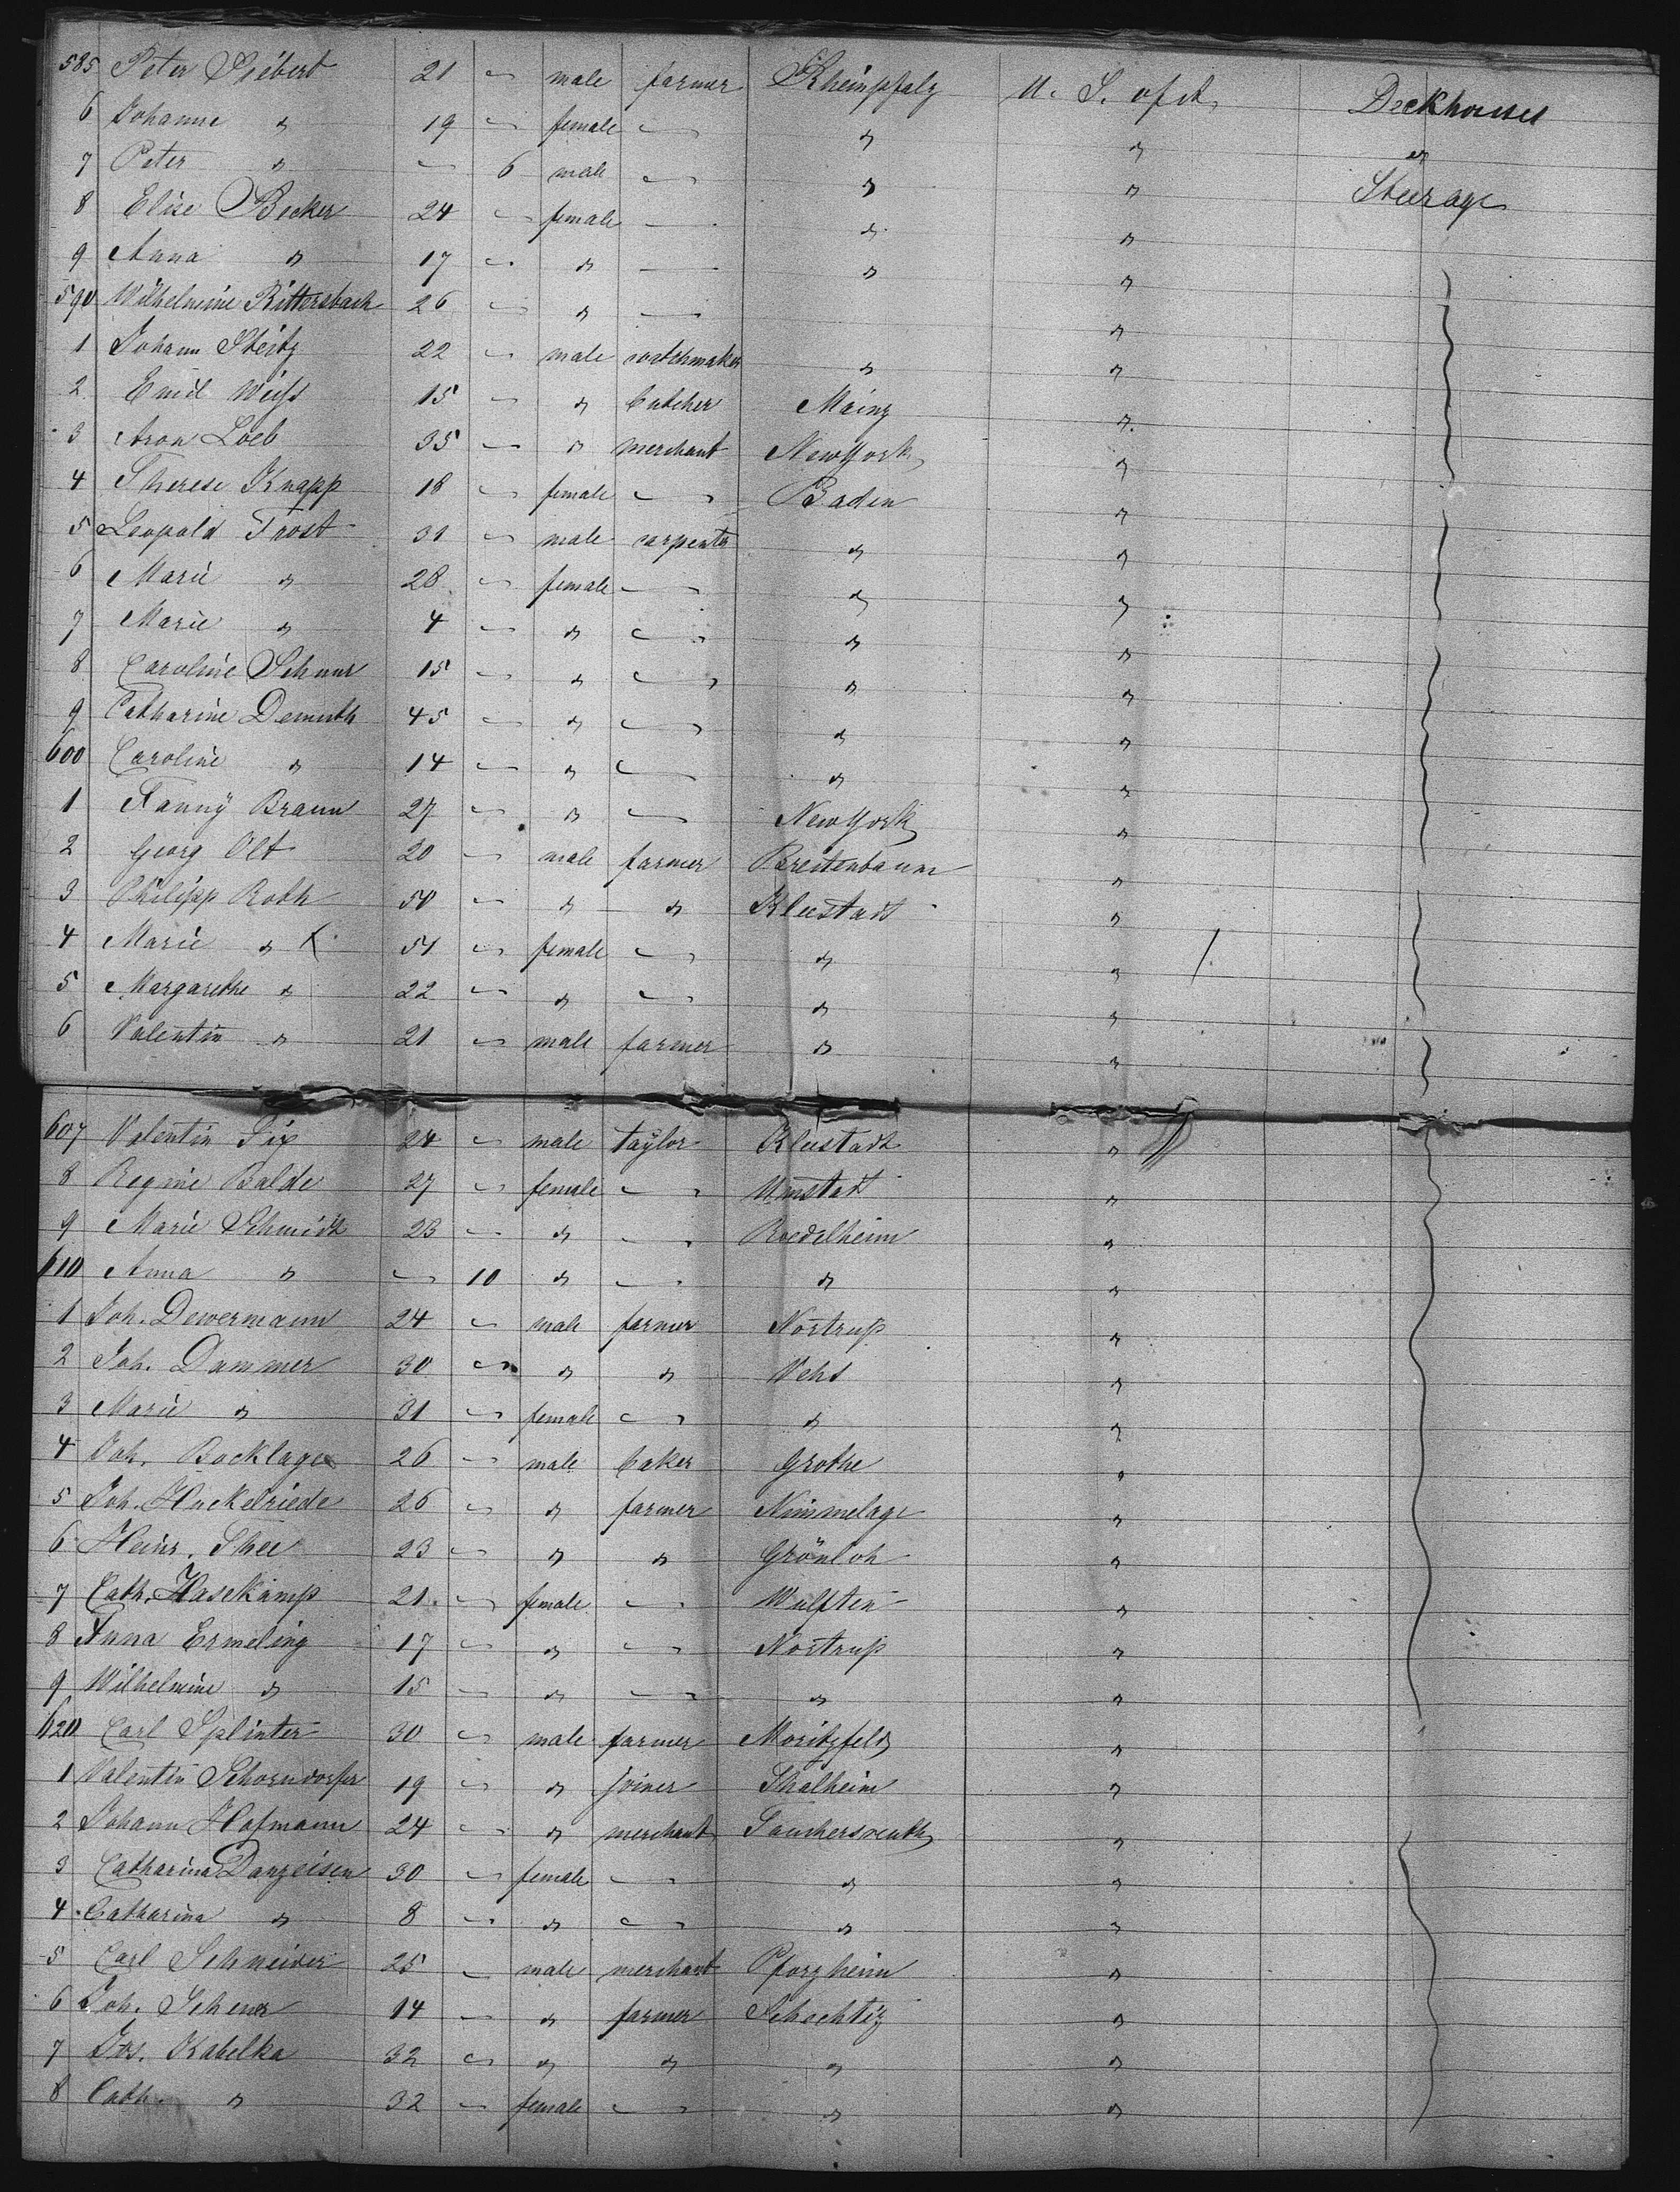 585 Peter Siebert 21 — male farmer Rheinpfalz U. S. of A. Deckhouses
6 Johanne " 19 — female — " " "
7 Peter " — 6 male — " " Steerage
8 Elise Becker 24 — female — " "
9 Anna " 17 — " — " "
590 Wilhelmine Rittersbach 26 — " — "
1 Johann Steitz 22 — male watchmaker " "
2 Emil Weiss 15 — " butcher Mainz "
3 Aron Loeb 35 — " merchant New York "
4 Therese Knapp 18 — female — Baden "
5 Leopold Trost 31 — male carpenter " "
6 Marie " 28 — female — " "
7 Marie " 4 — " — " "
8 Caroline Schnur 15 — " — " "
9 Catharine Demuth 45 — " — " "
600 Caroline " 14 — " — " "
1 Fanny Braun 27 — " — New York "
2 Georg Olt 20 — male farmer Breitenbaum "
3 Philipp Roth 50 — " " Kleestadt "
4 Marie " X 51 — female — " " /
5 Margarethe " 22 — " — " "
6 Valentin " 21 — male farmer " "
607 Valentin Fix 24 — male taylor Kleestadt "
8 Regine Balde 27 — female — Umstadt "
9 Marie Schmidt 23 — " — Roedelheim "
610 Anna " — 10 " — " "
1 Joh. Dewermann 24 — male farmer Nortrup "
2 Joh. Dammer 30 — " " Vehs "
3 Marie " 31 — female — " "
4 Joh. Bocklage 26 — male baker Grothe "
5 Joh. Huckelriede 26 — " farmer Nimmelage "
6 Heinr. Thee 23 — " " Grönloh "
7 Cath. Hasekamp 21 — female — Wulften "
8 Anna Ermeling 17 — " — Nortrup "
9 Wilhelmine " 15 — " — " "
620 Carl Splinter 30 — male farmer Moritzfeld "
1 Valentin Schorndorfer 19 — " joiner Thalheim "
2 Johann Hofmann 24 — " merchant "
3 Catharina Danzeisen 30 — female — " "
4 Catharina " 8 — " — " "
5 Carl Schneider 25 — male merchant Pforzheim "
6 Joh. Scheur 14 — " farmer Schochtiz "
7 Jos. Kabelka 32 — " " " "
8 Cath. " 32 — female — " "